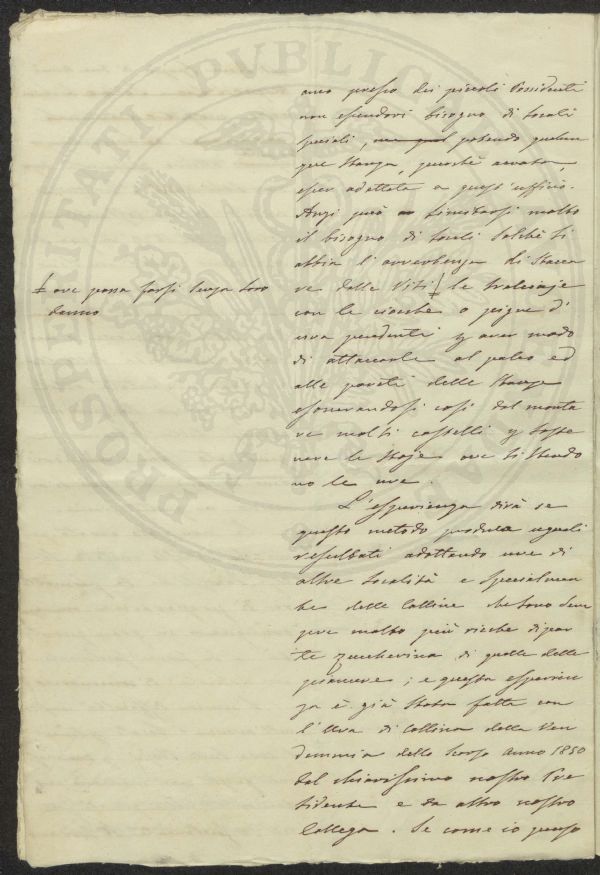 anco presso dei piccoli Possidenti
non essendovi bisogno di locali
speciali, potendo qualun
que stanza, purchè areata,
esser adattata a quest'ufficio.
Anzi può limitarsi molto
il bisogno di locali solchè si
abbia l'avvertenza di stacca
re dalle Viti le tralciaje
con le ciocche o pigne d'
uva pendenti y aver modo
di attaccarle al palco ed
alle pareti delle stanze
esonerandosi così dal monta
re molti castelli y soste
nere le stoje ove si stendo
no le uve.
L'esperienza dirà se
questo metodo produca eguali
resultati adottando uve di
altre località e specialmen
te delle Colline che sono sem
pre molto più ricche di par
te zuccherina di quelle delle
pianure; e questa esperien
za è già stata fatta con
l'Uva di Collina della Ven
demmia dello scorso anno 1850
dal chiarissimo nostro Pre
sidente e da altro nostro
Collega. Se come io penso
ove possa farsi senza loro
danno
PROSPERITATI PUBLICAE